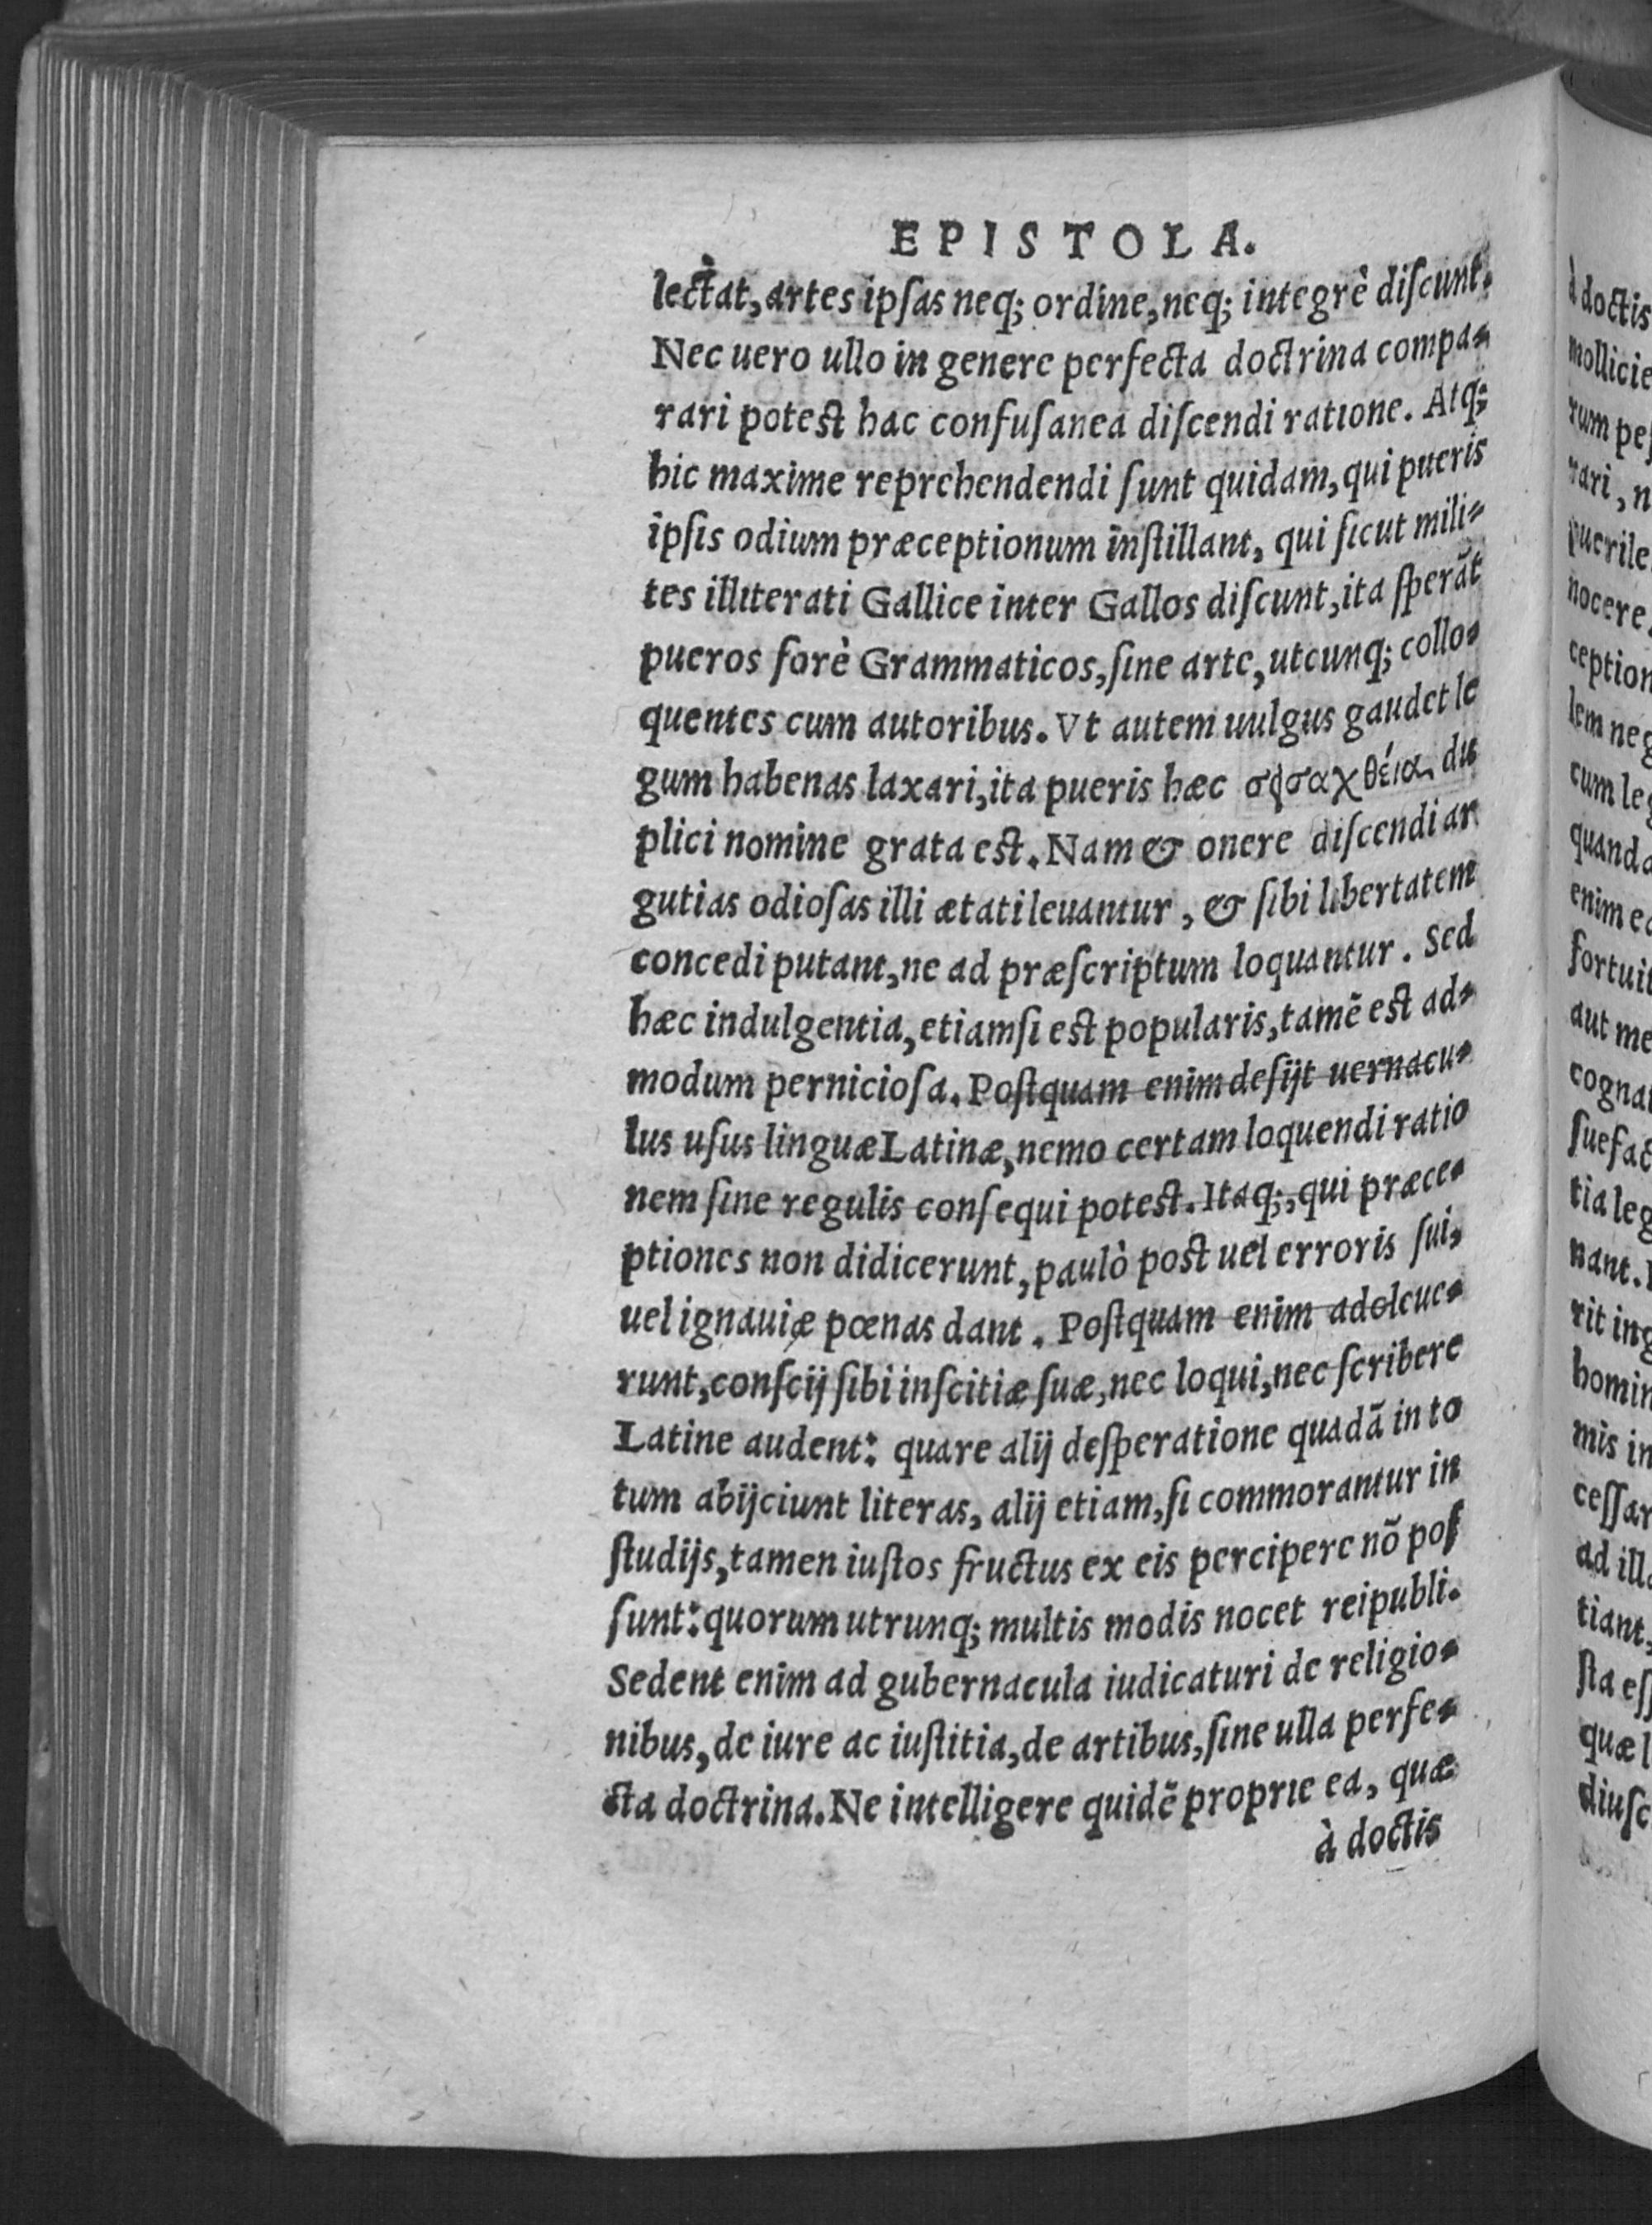 EPISTOLA.
lectat, artes ipſas neq; ordine, neq; integrè diſcunt.
Nec uero ullo in genere perfecta doctrina compa-
rari poteſt hac confuſanea diſcendi ratione. Atq;
hic maxime reprehendendi ſunt quidam, qui pueris
ipſis odium præceptionum inſtillant, qui ſicut mili-
tes illiterati Gallice inter Gallos diſcunt, ita ſperāt
pueros forè Grammaticos, ſine arte, utcunq; collo-
quentes cum autoribus. Vt autem uulgus gaudet le
gum habenas laxari, ita pueris hæc du
plici nomine grata est. Nam & onere diſcendi ar
gutias odioſas illi ætati leuantur, & ſibi libertatem
concedi putant, ne ad præſcriptum loquantur. Sed
hæc indulgentia, etiamſi est popularis, tamē est ad-
modum pernicioſa. Poſtquam enim deſijt uernacu-
lus uſus linguæ Latinæ, nemo certam loquendi ratio
nem ſine regulis conſequi potest. Itaq;, qui præce-
ptiones non didicerunt, paulò post uel erroris ſui,
uel ignauiæ pœnas dant. Poſtquam enim adoleue-
runt, conſcij ſibi inſcitiæ ſuæ, nec loqui, nec ſcribere
Latine audent: quare alij deſperatione quadā in to
tum abijciunt literas, alij etiam, ſi commorantur in
ſtudijs, tamen iuſtos fructus ex eis percipere nō poſ
ſunt: quorum utrunq; multis modis nocet reipubli.
Sedent enim ad gubernacula iudicaturi de religio-
nibus, de iure ac iuſtitia, de artibus, ſine ulla perfe-
cta doctrina. Ne intelligere quidē proprie ea, quæ
à doctis
à doctis
mollicie
rari, n
puerile
nocere
ception
lem neg
cum leg
enim
fortuit
aut me
tia leg
nant.
rit ing
homin
mis in
ad ill
tiant,
quæ l
diuſc